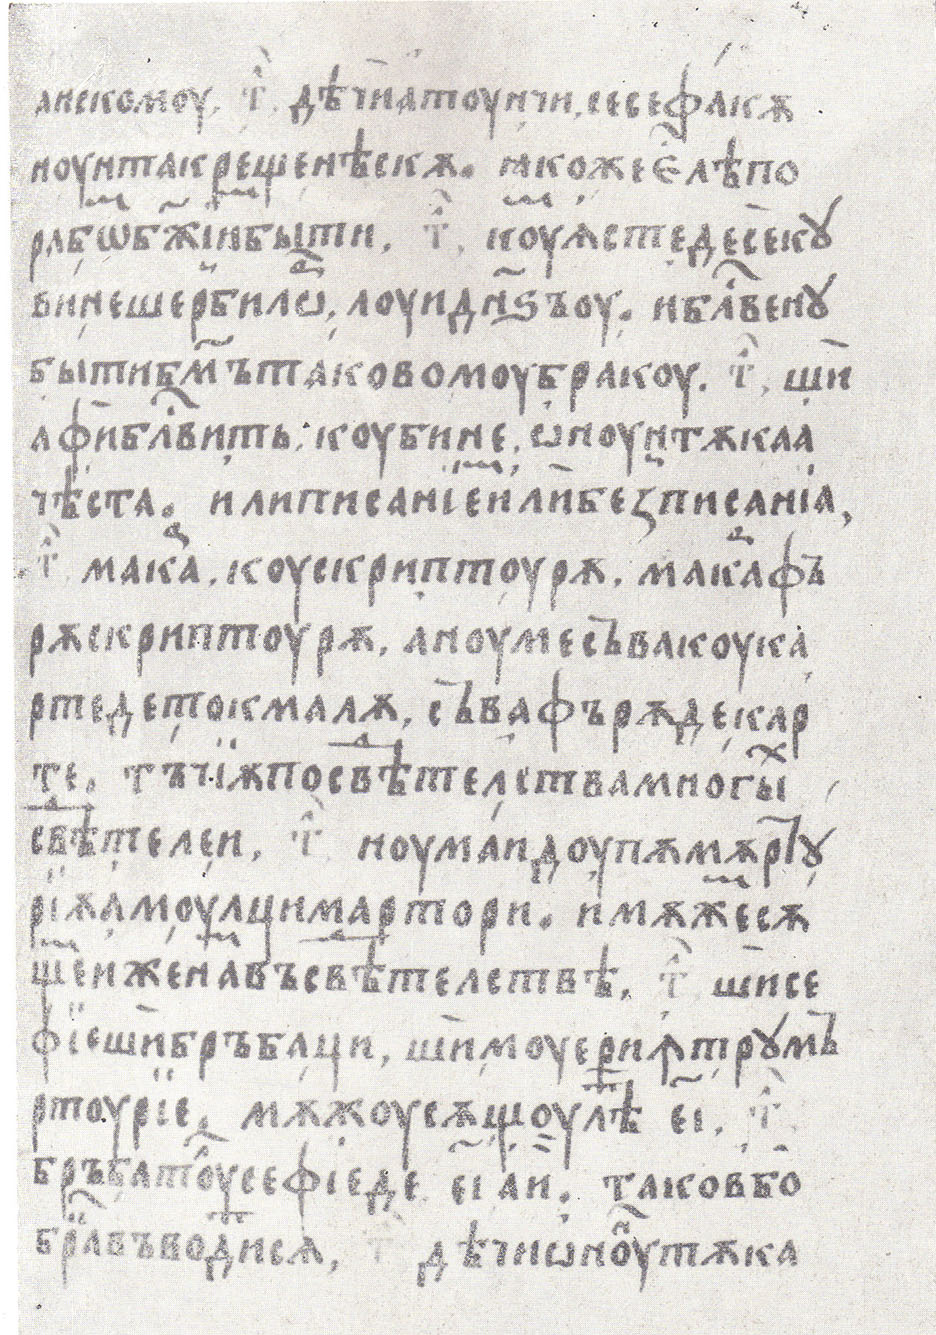 анскомоу. т҃. дѣч꙼ѝнатоунчи, сесефа́кѫ
ноунтакрещенѣскѫ. ꙗкожеє҆лѣпо
рабѡбж҃їиибыти, т҃. коуꙗстедесеку
винешербилѡ, лоуидн҃ѕъоу. ибл҃венꙋ
бытибм҃ътаковомоубракоу. т҃. ши
афибл҃вить. коубине, ѡноунтѫкаа
чѣста. илиписанїеилибеꙁписанїа,
т҃. макⷣа. коускриптоурѫ. макⷣафъ
рѫскриптоурѫ, аноумесъвакоука
ртедетокмалѫ, съвафърѫдекар
те. тъчїѫпосвⷣѣтелствамногыⷯ
свⷣѣтелеи, т҃. ноумаидоупѫмѫрїꙋ
рїѫамоулцимартори. имѫжесѧ
щеиженавъсвⷣѣтелствѣ, т҃. шисе
фїешибръбаци, шимоуериꙟтрꙋмъ
ртоурїе. мѫжоусѫщоулⷮѣ е҃і. т҃.
бръбатоу҆сефїеде е҃і ан҃и. таковбо
бра́въводⷮисѧ, т҃ дѣчиѡноу҆тѫка